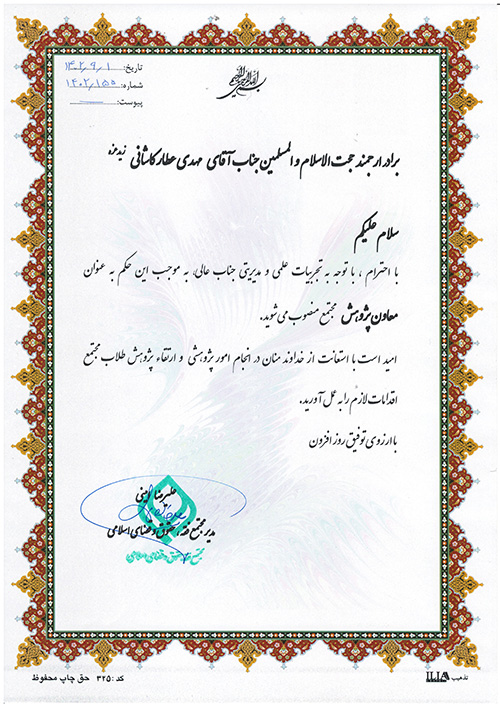 بسم الله الرحمن الرحیم
تاریخ: ۱۴۰۲٫۹٫۱
شماره: ۱۴۰۲٫۱۵۵
پیوست:
برادر ارجمند حجت الاسلام و المسلمین جناب آقای مهدی عطار کاشانی زید عزه
سلام علیکم
با احترام ، با توجه به تجربیات علمی و مدیریتی جناب عالی، به موجب این حکم به عنوان
معاون پژوهش مجتمع منصوب می شوید.
امید است با استعانت از خداوند منان در انجام امور پژوهشی و ارتقاء پژوهش طلاب مجتمع
اقدامات لازم را به عمل آورید.
با آرزوی توفیق روز افزون
علیرضا امینی
مدیر مجتمع فقه، حقوق و قضای اسلامی
مجتمع فقه، حقوق و قضای اسلامی
تذهیب ILIA
کد: ۳۲۵ حق چاپ محفوظ